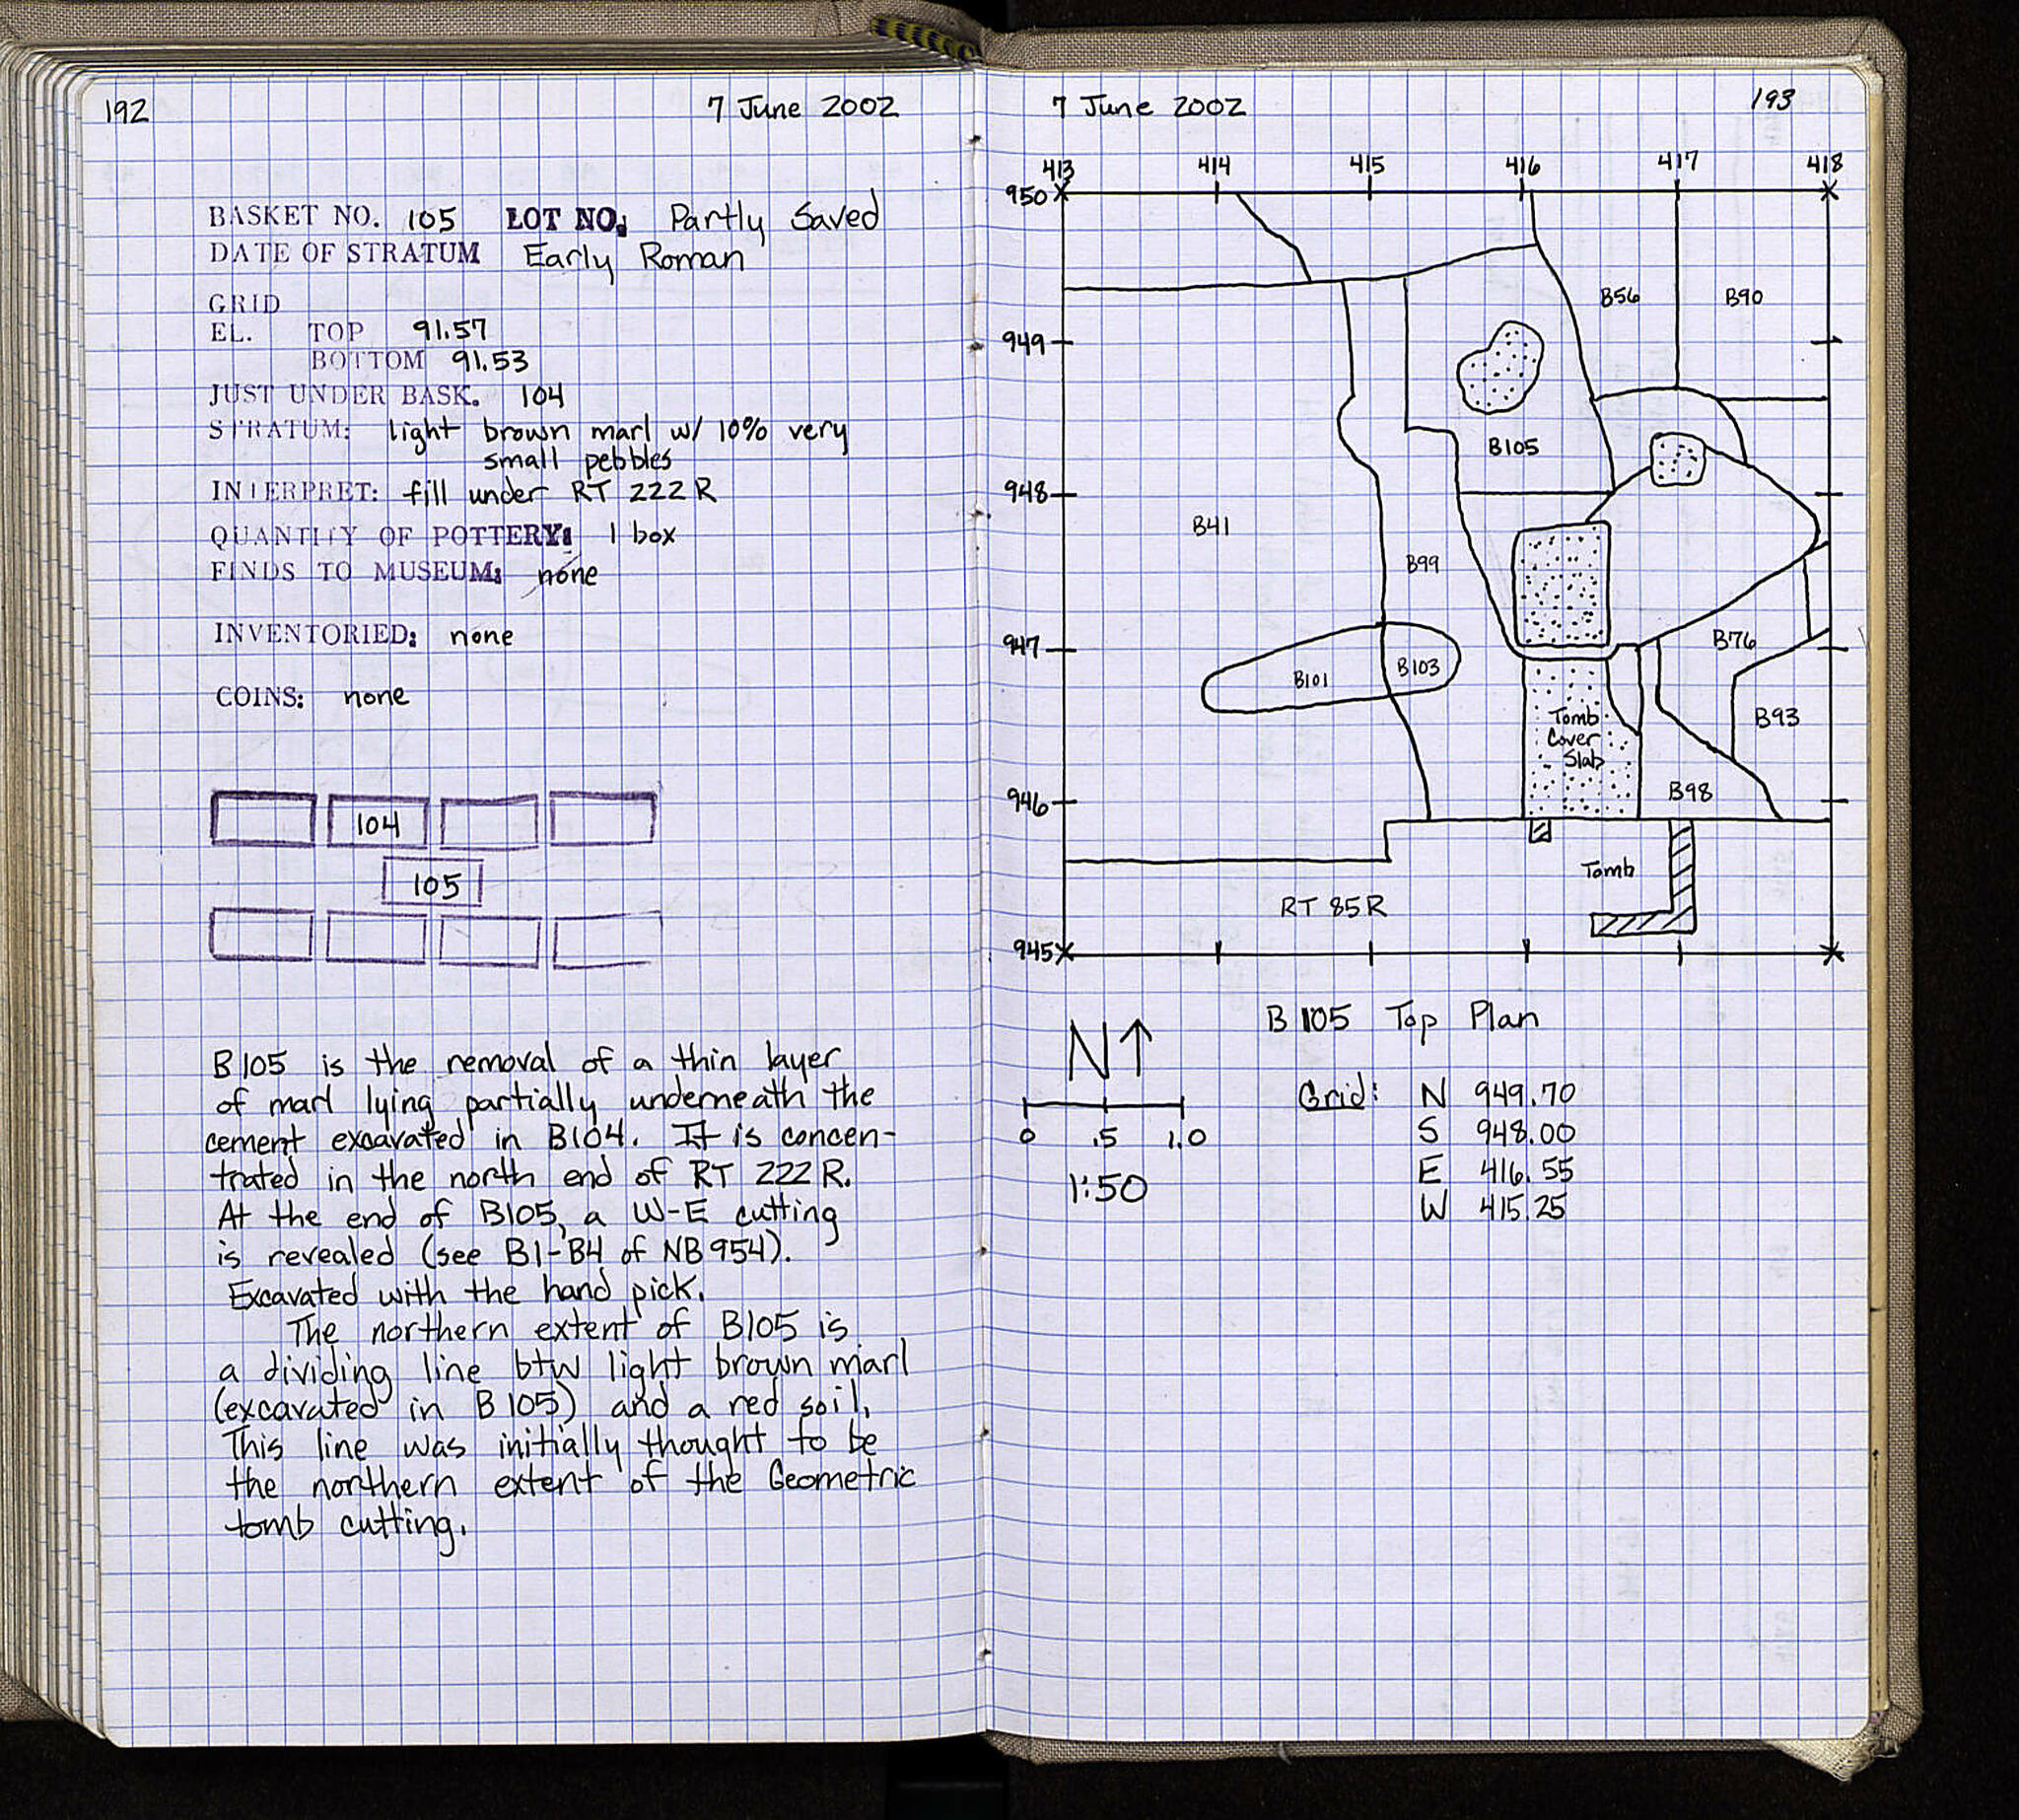 192
7 June 2002
BASKET NO. 105 LOT NO: Partly Saved
DATE OF STRATUM Early Roman
GRID
EL. TOP 91.57
BOTTOM 91.53
JUST UNDER BASK. 104
STRATUM: light brown marl w/ 10% very
small pebbles
INTERPRET: fill under RT 222 R
QUANTITY OF POTTERY: 1 box
FINDS TO MUSEUM: none
INVENTORIED: none
COINS: none
104
105
B105 is the removal of a thin layer
of marl lying partially underneath the
cement excavated in B104. It is concen-
trated in the north end of RT 222 R.
At the end of B105, a W-E cutting
is revealed (see B1-B4 of NB 954).
Excavated with the hand pick.
The northern extent of B105 is
a dividing line btw light brown marl
(excavated in B105) and a red soil.
This line was initially thought to be
the northern extent of the Geometric
tomb cutting.
7 June 2002
193
413 414 415 416 417 418
950
B56 B90
949
B105
948
B41
B99
947
B76
B101 B103
B93
Tomb
Cover
Slab
946
B98
Tomb
RT 85R
945
B105 Top Plan
N
Grid: N 949.70
S 948.00
E 416.55
W 415.25
0 .5 1.0
1:50